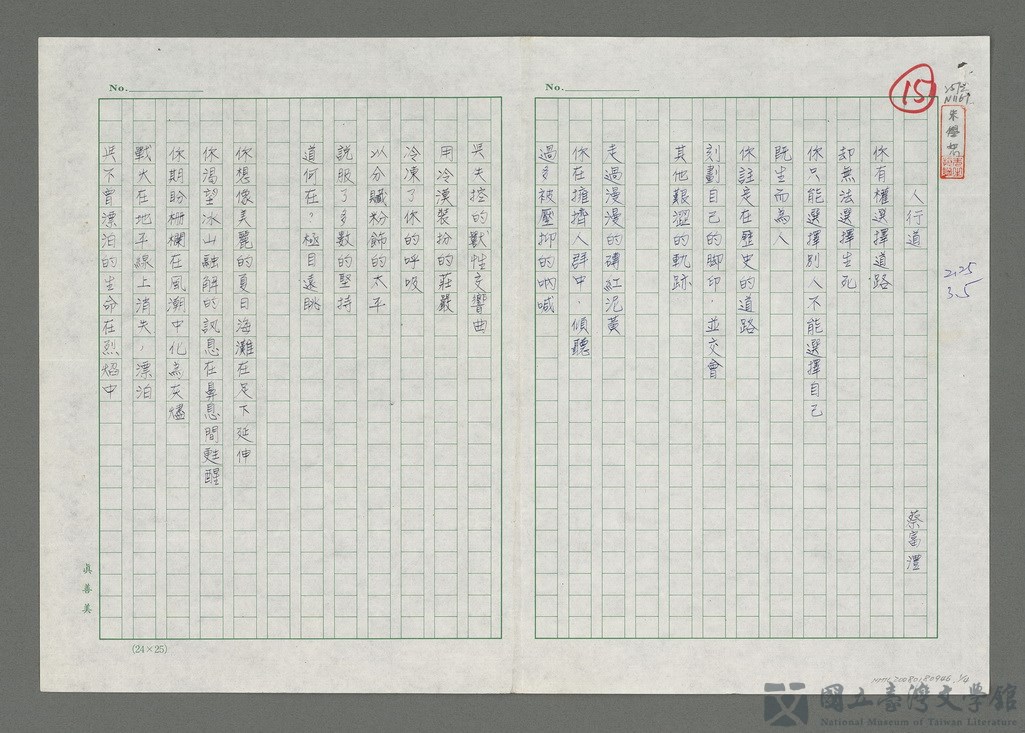 15
No.
人行道
蔡富澧
你有權選擇道路
却無法選擇生死
你只能選擇別人不能選擇自己
既生而為人
你註定在歷史的道路
刻劃自己的脚印，並交會
其他艱澀的軌跡
走過漫漫的磚紅泥黃
你在擁擠人群中，傾聽
過多被壓抑的吶喊
No.
吳失控的獸性交響曲
用冷漠裝扮的莊嚴
冷凍了你的呼吸
以分贓粉飾的太平
說服了多數的堅持
道何在？極目遠眺
你想像美麗的夏日海灘在足下延伸
你渴望冰山融解的訊息在鼻息間甦醒
你期盼柵欄在風潮中化為灰燼
戰火在地平線上消失，漂泊
吳下曾漂泊的生命在烈焰中
真善美
(24×25)
2.25
3.5
NMTL20080180946, 1/4
國立臺灣文學館
National Museum of Taiwan Literature